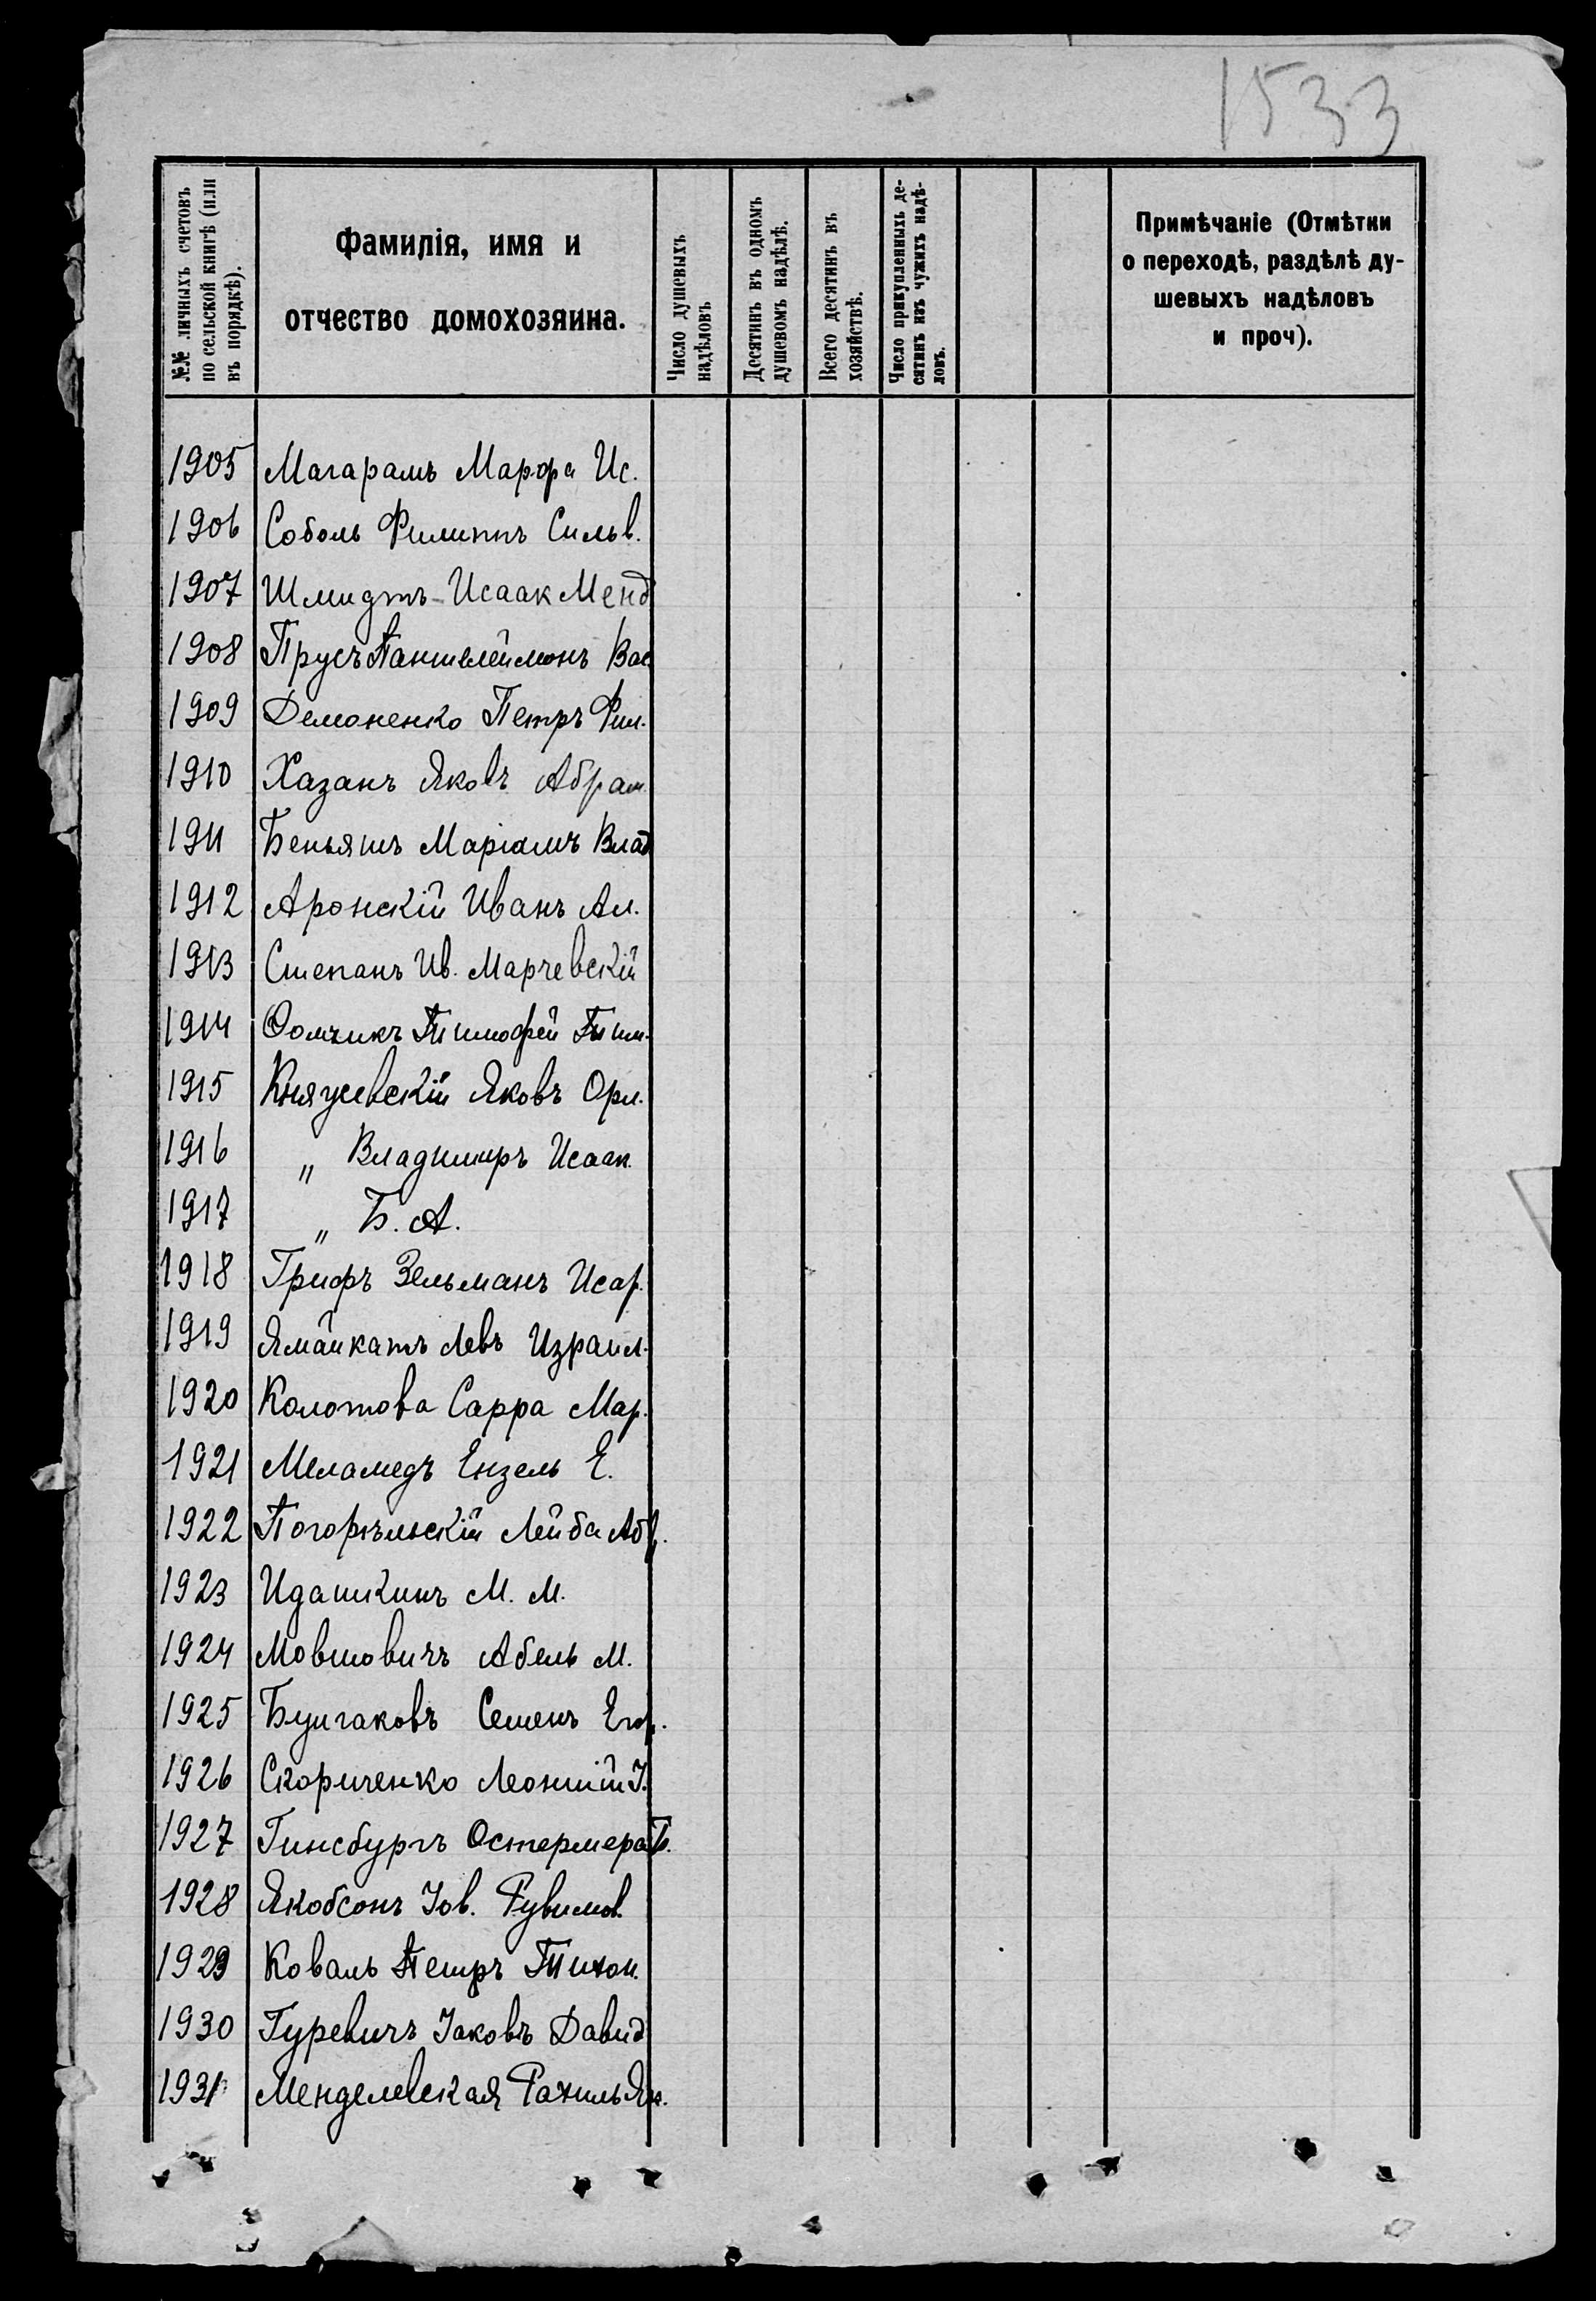 1533
№№ личныхъ счетовъ
по сельской книгѣ (или
въ порядкѣ).
Фамилія, имя и
отчество домохозяина.
Число душевыхъ
надѣловъ
Десятинъ въ одномъ
душевомъ надѣлѣ.
Всего десятинъ въ
хозяйствѣ.
Число прикупленныхъ де-
сятинъ изъ чужихъ надѣ-
ловъ.
Примѣчаніе (Отмѣтки
о переходѣ, раздѣлѣ ду-
шевыхъ надѣловъ
и проч).
1905 Магарамъ Марфа Ис.
1906 Соболь Филиппъ Сильв.
1907 Шмидтъ Исаак Менд
1908 Прусъ Пантелеймонъ Вас
1909 Демоненко Петръ Фил.
1910 Хазанъ Яковъ Абрам.
1911 Беньяшъ Маріамъ Влад
1912 Аронскій Иванъ Ал.
1913 Степанъ Ив. Марчевскій
1914 Тимофей Тим.
1915 Княжевскій Яковъ
1916 „ Владимиръ Исаак.
1917 „ Б. А.
1918 Грифъ Зельманъ Исар.
1919 Ямайкатъ Левъ Израил.
1920 Колотова Сарра Мар.
1921 Меламедъ Ензель Е.
1922 Погорѣльскій Лейба Абр.
1923 Идашкинъ М. М.
1924 Мовшовичъ Абель М.
1925 Булгаковъ Семенъ Егор.
1926 Скориченко Леонтій І.
1927 Гинсбургъ Остермера Б.
1928 Якобсонъ Іов. Рувимов.
1929 Коваль Петръ Тихон.
1930 Гуревичъ Іаковъ Давид
1931 Менделевская Рахиль Як.